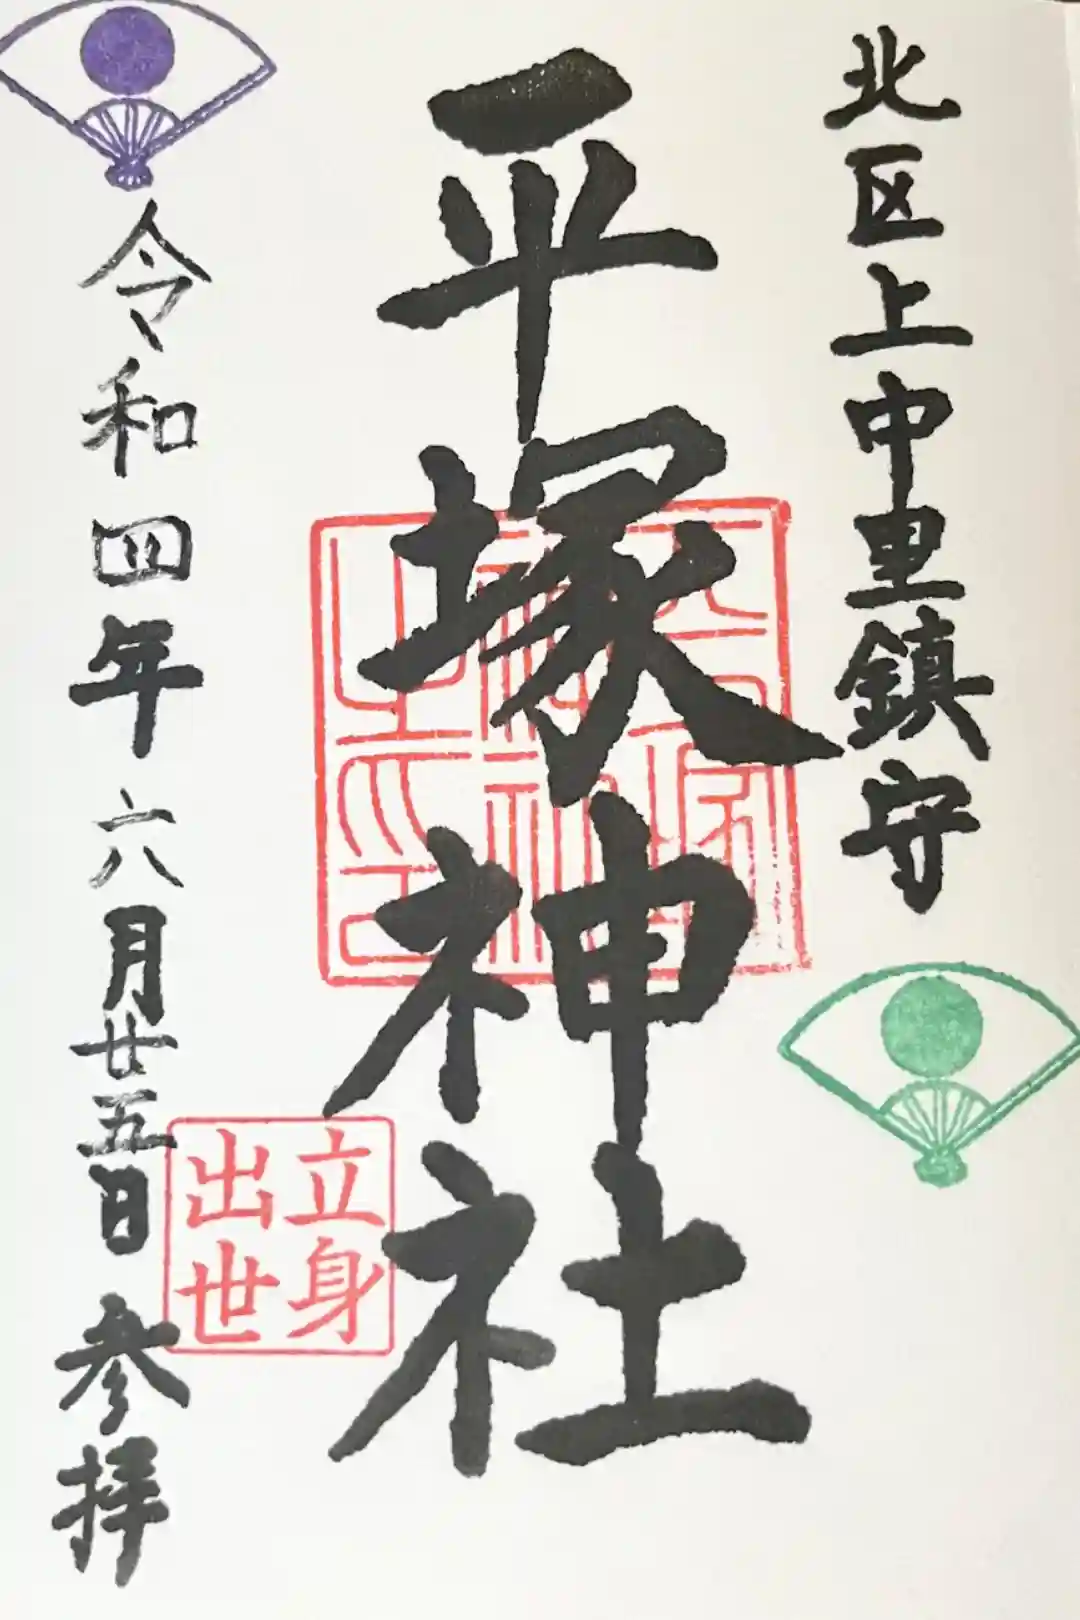 北区上中里鎮守
平塚神社
立身
出世
令和四年六月廿五日参拝